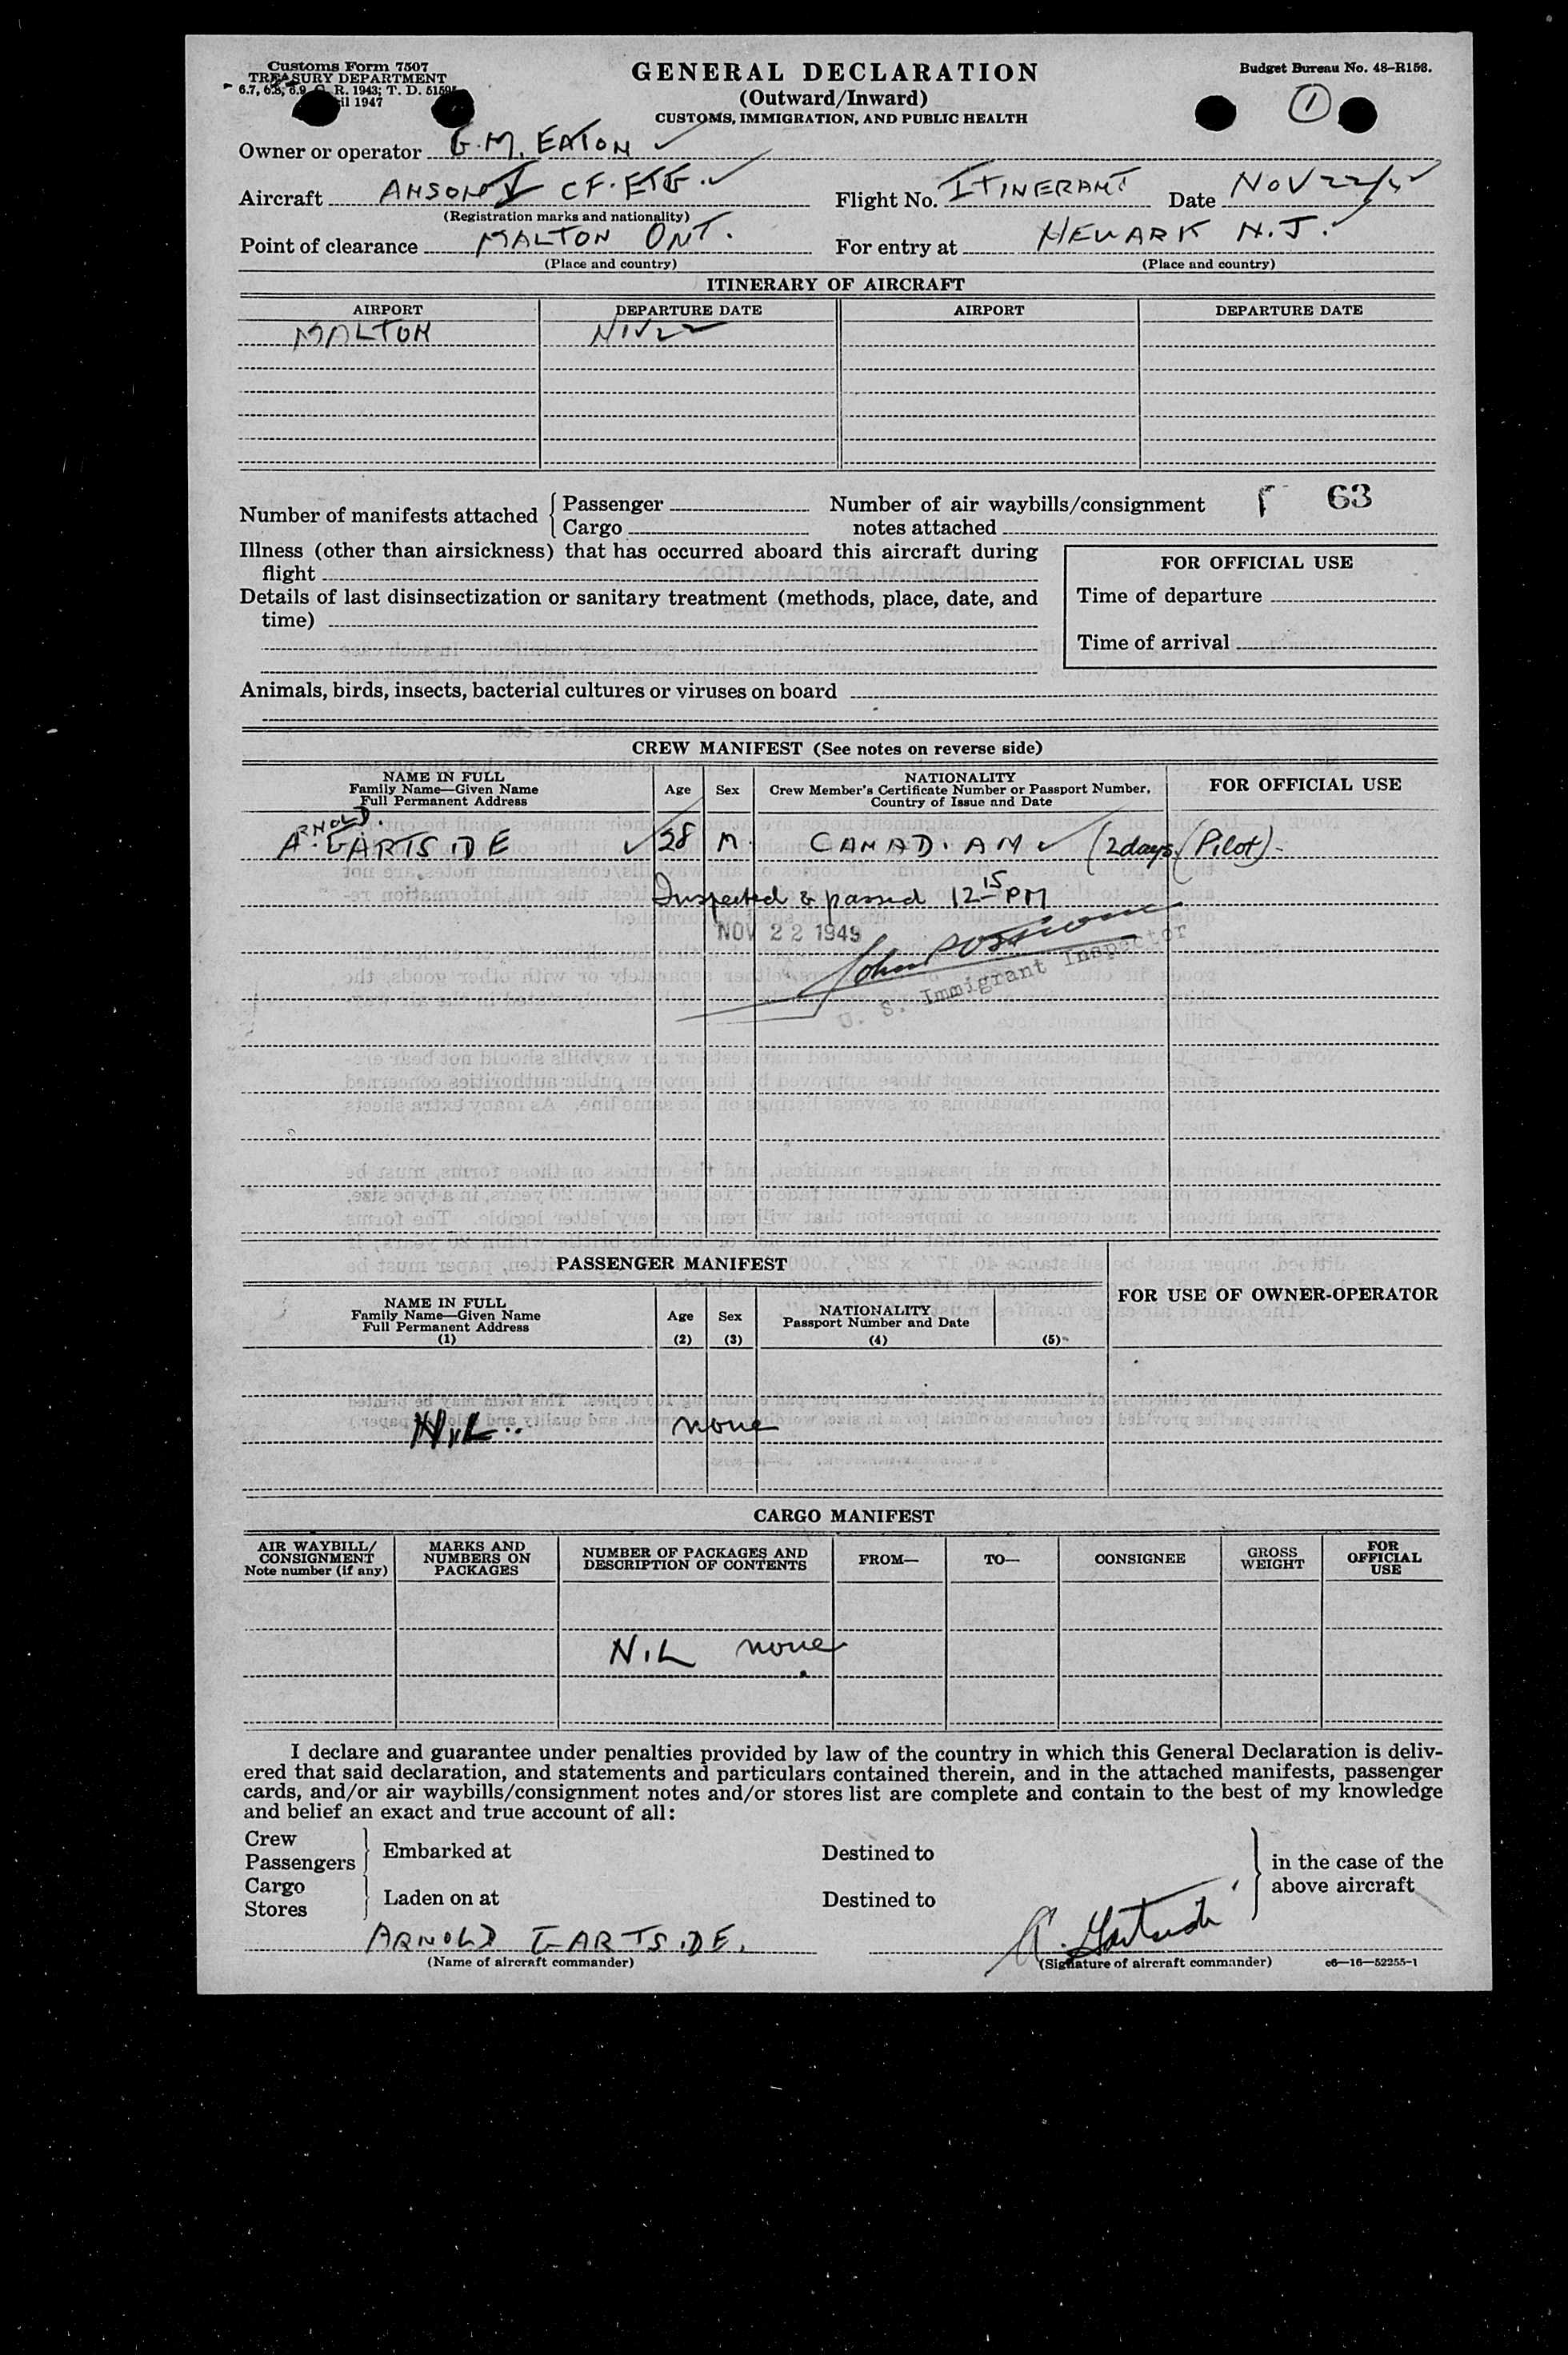 Customs Form 7507
TREASURY DEPARTMENT
6.7, 6.8, 6.9, C. R. 1943; T. D. 51595
1947
GENERAL DECLARATION
(Outward/Inward)
CUSTOMS, IMMIGRATION, AND PUBLIC HEALTH
Budget Bureau No. 48-R156.
1
Owner or operator G.M. EATON
Aircraft ANSON V CF.ETG. Flight No. ITINERANT Date NOV 22/
(Registration marks and nationality)
Point of clearance MALTON ONT. For entry at NEWARK N.J.
(Place and country) (Place and country)
ITINERARY OF AIRCRAFT
AIRPORT DEPARTURE DATE AIRPORT DEPARTURE DATE
MALTON NOV 22
Number of manifests attached { Passenger
Cargo
Number of air waybills/consignment
notes attached
63
Illness (other than airsickness) that has occurred aboard this aircraft during
flight
Details of last disinsectization or sanitary treatment (methods, place, date, and
time)
FOR OFFICIAL USE
Time of departure
Time of arrival
Animals, birds, insects, bacterial cultures or viruses on board
CREW MANIFEST (See notes on reverse side)
NAME IN FULL
Family Name—Given Name
Full Permanent Address
Age
Sex
NATIONALITY
Crew Member's Certificate Number or Passport Number,
Country of Issue and Date
FOR OFFICIAL USE
RNOLD.
A. GARTSIDE 28 M. CANADIAN (2 days) (Pilot)
Inspected & passed 12 15 PM
NOV 22 1949
John
U. S. Immigrant Inspector
PASSENGER MANIFEST
FOR USE OF OWNER-OPERATOR
NAME IN FULL
Family Name—Given Name
Full Permanent Address
(1)
Age
(2)
Sex
(3)
NATIONALITY
Passport Number and Date
(4)
(5)
NIL none
CARGO MANIFEST
AIR WAYBILL/
CONSIGNMENT
Note number (if any)
MARKS AND
NUMBERS ON
PACKAGES
NUMBER OF PACKAGES AND
DESCRIPTION OF CONTENTS
FROM—
TO—
CONSIGNEE
GROSS
WEIGHT
FOR
OFFICIAL
USE
NIL none
I declare and guarantee under penalties provided by law of the country in which this General Declaration is deliv-
ered that said declaration, and statements and particulars contained therein, and in the attached manifests, passenger
cards, and/or air waybills/consignment notes and/or stores list are complete and contain to the best of my knowledge
and belief an exact and true account of all:
Crew
Passengers } Embarked at Destined to
Cargo
Stores } Laden on at Destined to
} in the case of the
above aircraft
ARNOLD GARTSIDE. A. Gartside
(Name of aircraft commander) (Signature of aircraft commander) c6—16—52255-1